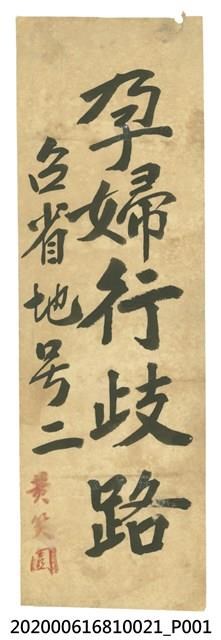 孕婦行歧路
台省地号二
黃笑園
202000616810021_P001